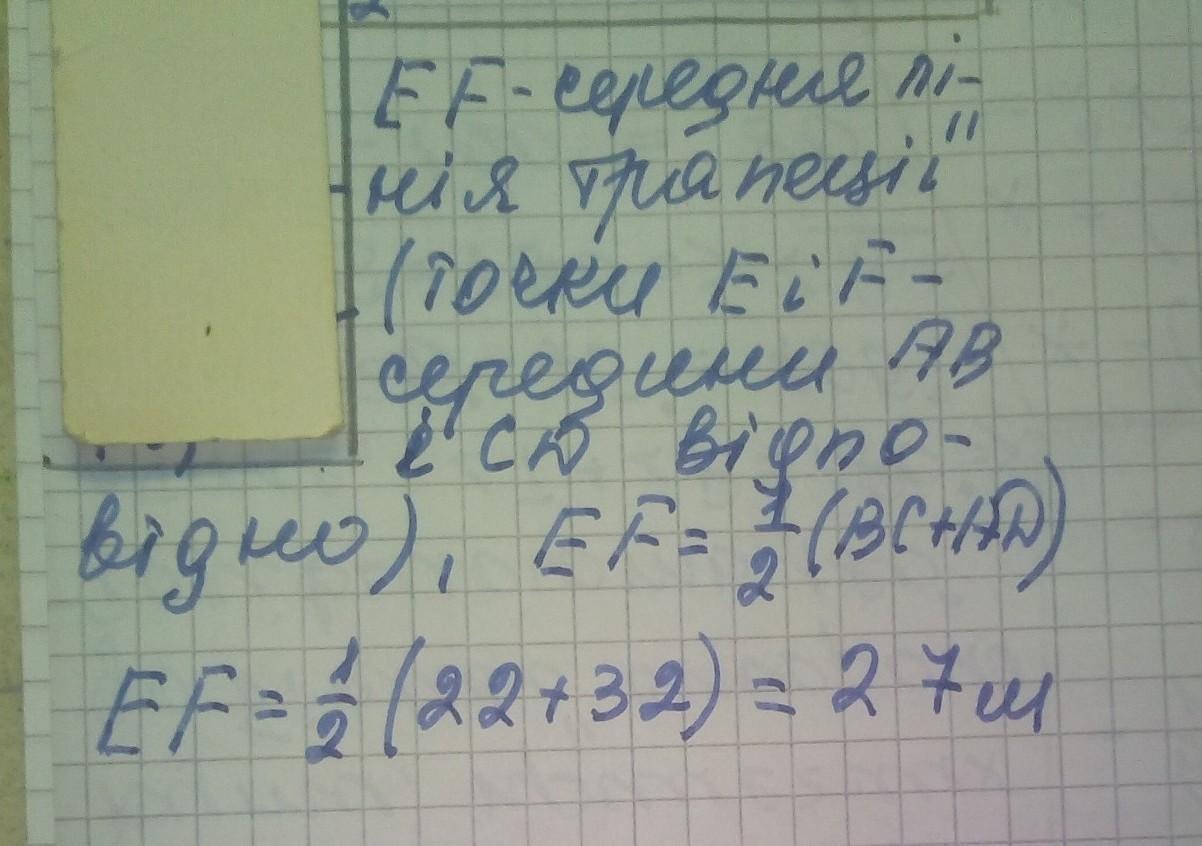 2
EF - середня лі-
нія трапеції
(точки E і F -
середини AB
і CD відпо-
відно), EF = 1/2 (BC + AD)
EF = 1/2 (22 + 32) = 27 м